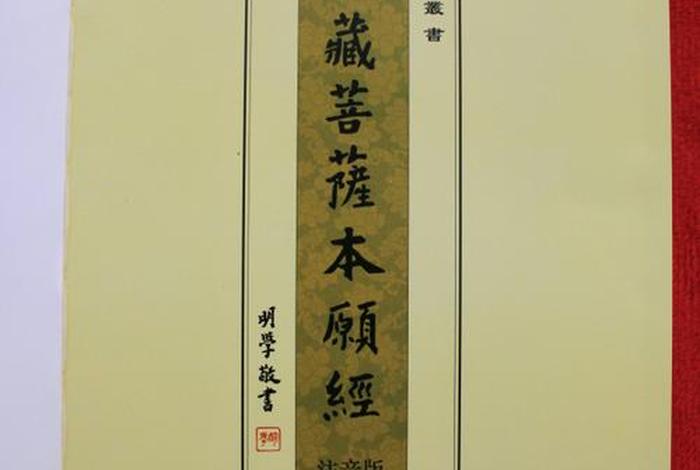 叢書
藏菩薩本願經
明學敬書
注音版